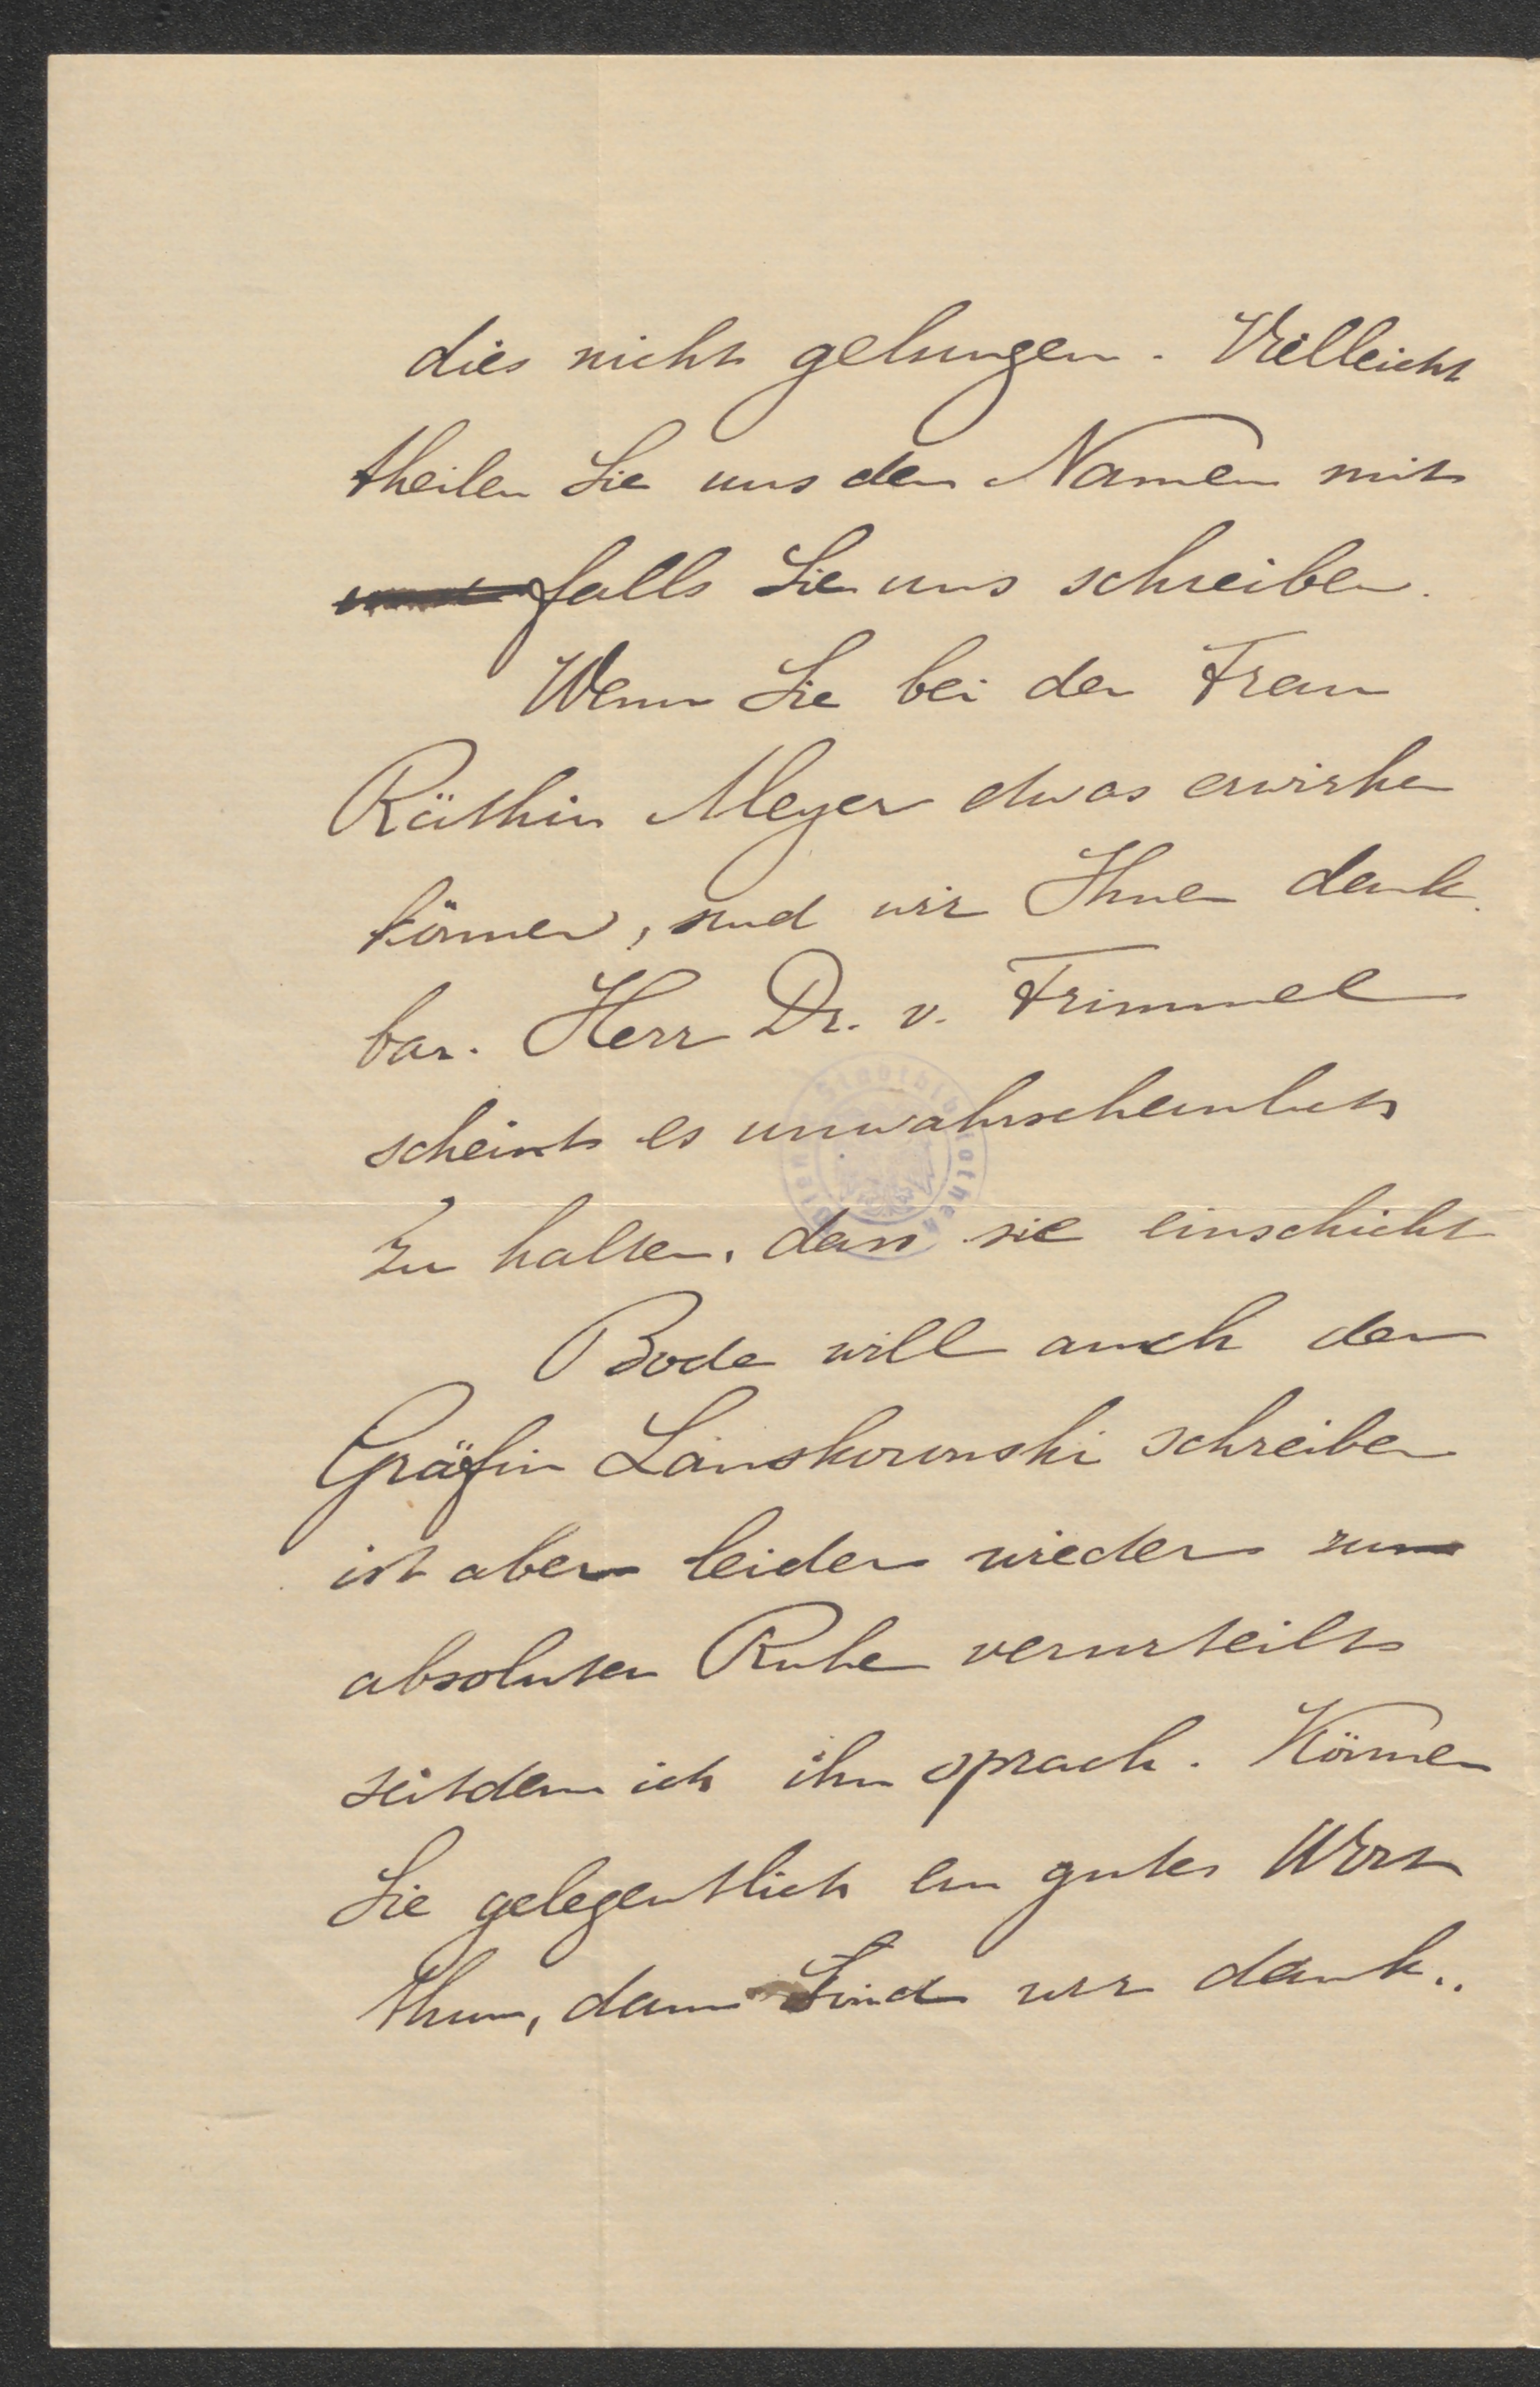 dies nicht gelungen. Vielleicht
theilen Sie uns den Namen mit
falls Sie uns schreiben.
Wenn Sie bei der Frau
Räthin Meyer etwas erwirken
können, sind wir Ihnen dank
bar. Herr Dr. v. Frimmel
scheint es unwahrscheinlich
zu halten, dass sie einschickt
Bode will auch der
Gräfin Lanskoronski schreiben
ist aber leider wieder zur
absoluten Ruhe verurteilt
seitdem ich ihn sprach. Können
Sie gelegentlich ein gutes Wort
thun, dann sind wir dank..